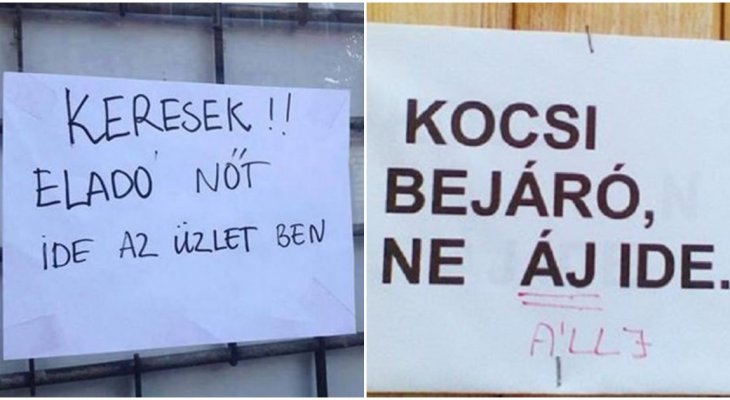 KERESEK!!
ELADÓ NŐT
IDE AZ ÜZLET BEN
KOCSI
BEJÁRÓ,
NE ÁJ IDE.
ÁLLJ